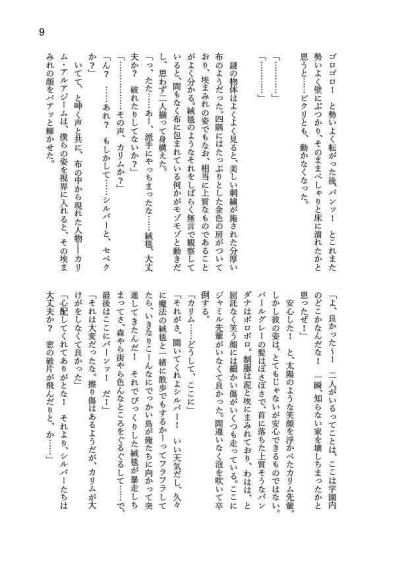 9
ゴロゴロ！　と勢いよく転がった後、バンッ！　とこれまた
勢いよく壁にぶつかり、そのままべしゃりと床に潰れたかと
思うと……ピクリとも、動かなくなった。
「…………」
「…………」
謎の物体はよくよく見ると、美しい刺繍が施された分厚い
布のようだった。四隅にはたっぷりとした金色の房がついて
おり、埃まみれの姿でもなお、相当に上質なものであること
がよく分かる。絨毯のようなそれをしばらく無言で観察して
いると、間もなく布に包まれている何かがモゾモゾと動きだ
し、思わず二人揃って身構えた。
「っ、たた……あー、派手にやっちまったな……絨毯、大丈
夫か？　破れたりしてないか？」
「…………その声、カリムか？」
「ん？　……あれ？　もしかして……シルバーと、セベク
か？」
いてて、と呻く声と共に、布の中から現れた人物──カリ
ム・アルアジームは、僕らの姿を視界に入れると、その埃ま
みれの顔をパアッと輝かせた。
「よ、良かった〜！　二人がいるってことは、ここは学園内
のどこかなんだな！　一瞬、知らない家を壊しちまったかと
思ったぜ！」
安心した！　と、太陽のような笑顔を浮かべたカリム先輩。
しかし彼の姿は、とてもじゃないが安心できるものではない。
パールグレーの髪はぼさぼさで、首に落ちた上質そうなバン
ダナはボロボロ。制服は泥と埃にまみれており、わはは、と
屈託なく笑う顔には細かい傷がいくつも走っている。ここに
ジャミル先輩がいなくて良かった。間違いなく泡を吹いて卒
倒する。
「カリム……どうして、ここに」
「それがさ、聞いてくれよシルバー！　いい天気だし、久々
に魔法の絨毯と一緒に散歩でもするかーってフラフラして
たら、いきなりこーんなにでっかい鳥が俺たちに向かって突
進してきたんだ！　それでびっくりした絨毯が暴走しち
まってさ、森やら街やら色んなところをぐるぐるして……で、
最後はここにバーンッ！　だ！」
「それは大変だったな。擦り傷はあるようだが、カリムが大
けがをしなくて良かった」
「心配してくれてありがとな！　それより、シルバーたちは
大丈夫か？　窓の破片が飛んだりと、か……」